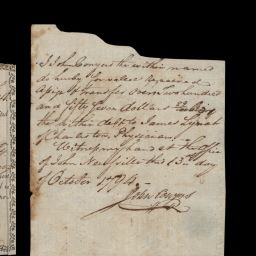 I John Conyers the within named
do hereby for value Received
Assign & transfer over Two hundred
and fifty Seven dollars
the within debt to James Lynah
of Charleston, Physician.
Witness my hand at the Office
of John Neufville this 13th day
of October 1794.
John Conyers